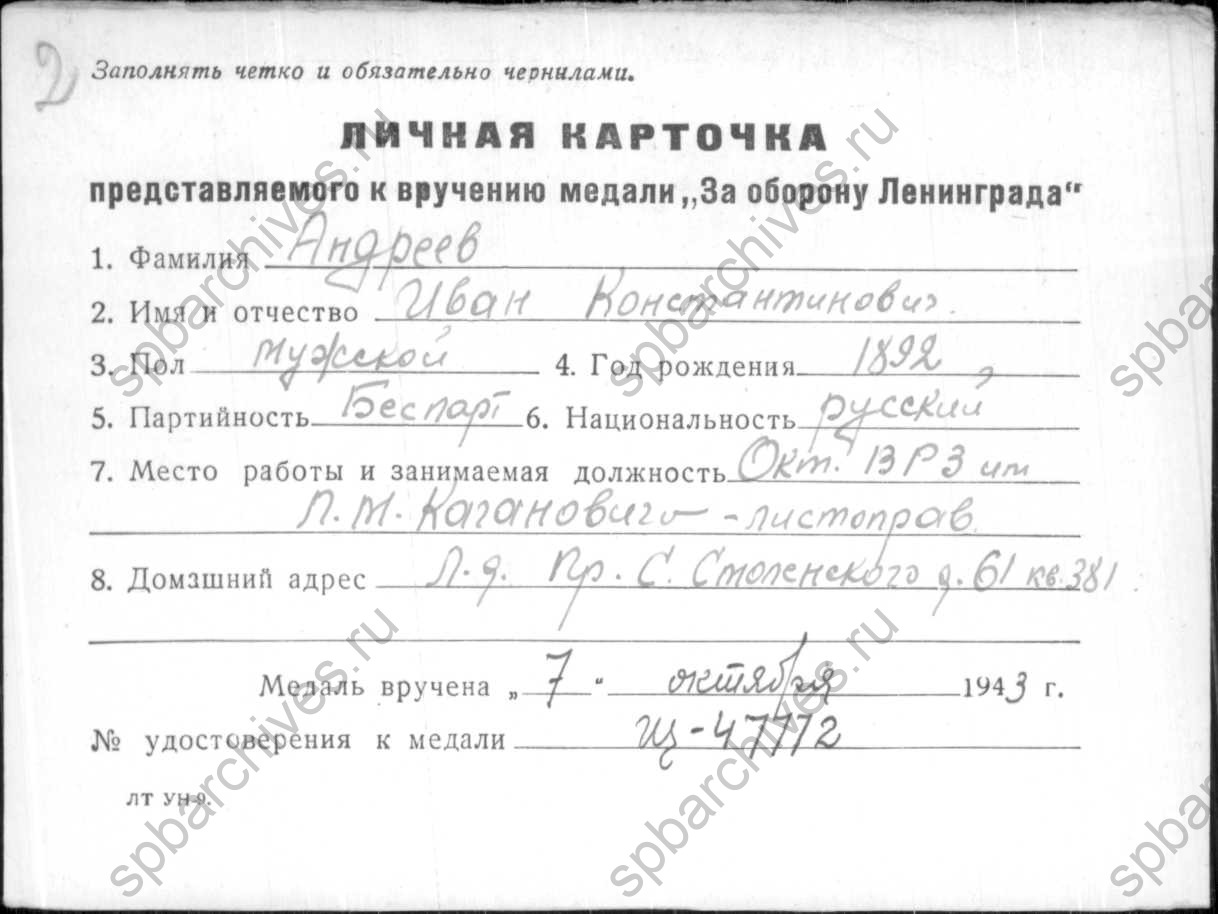 2
Заполнять четко и обязательно чернилами.
ЛИЧНАЯ КАРТОЧКА
представляемого к вручению медали „За оборону Ленинграда“
1. Фамилия Андреев
2. Имя и отчество Иван Константинович.
3. Пол мужской 4. Год рождения 1892
5. Партийность Беспарт 6. Национальность русский
7. Место работы и занимаемая должность Окт. ВРЗ им
Л. М. Кагановича - листоправ.
8. Домашний адрес Л-д. Пр. С. Смоленского д. 61 кв. 381
Медаль вручена „ 7 “ октября 1943 г.
№ удостоверения к медали Щ-47772
ЛТ УН-9.
spbarchives.ru
spbarchives.ru
spbarchives.ru
spbarchives.ru
spbarchives.ru
spbarchives.ru